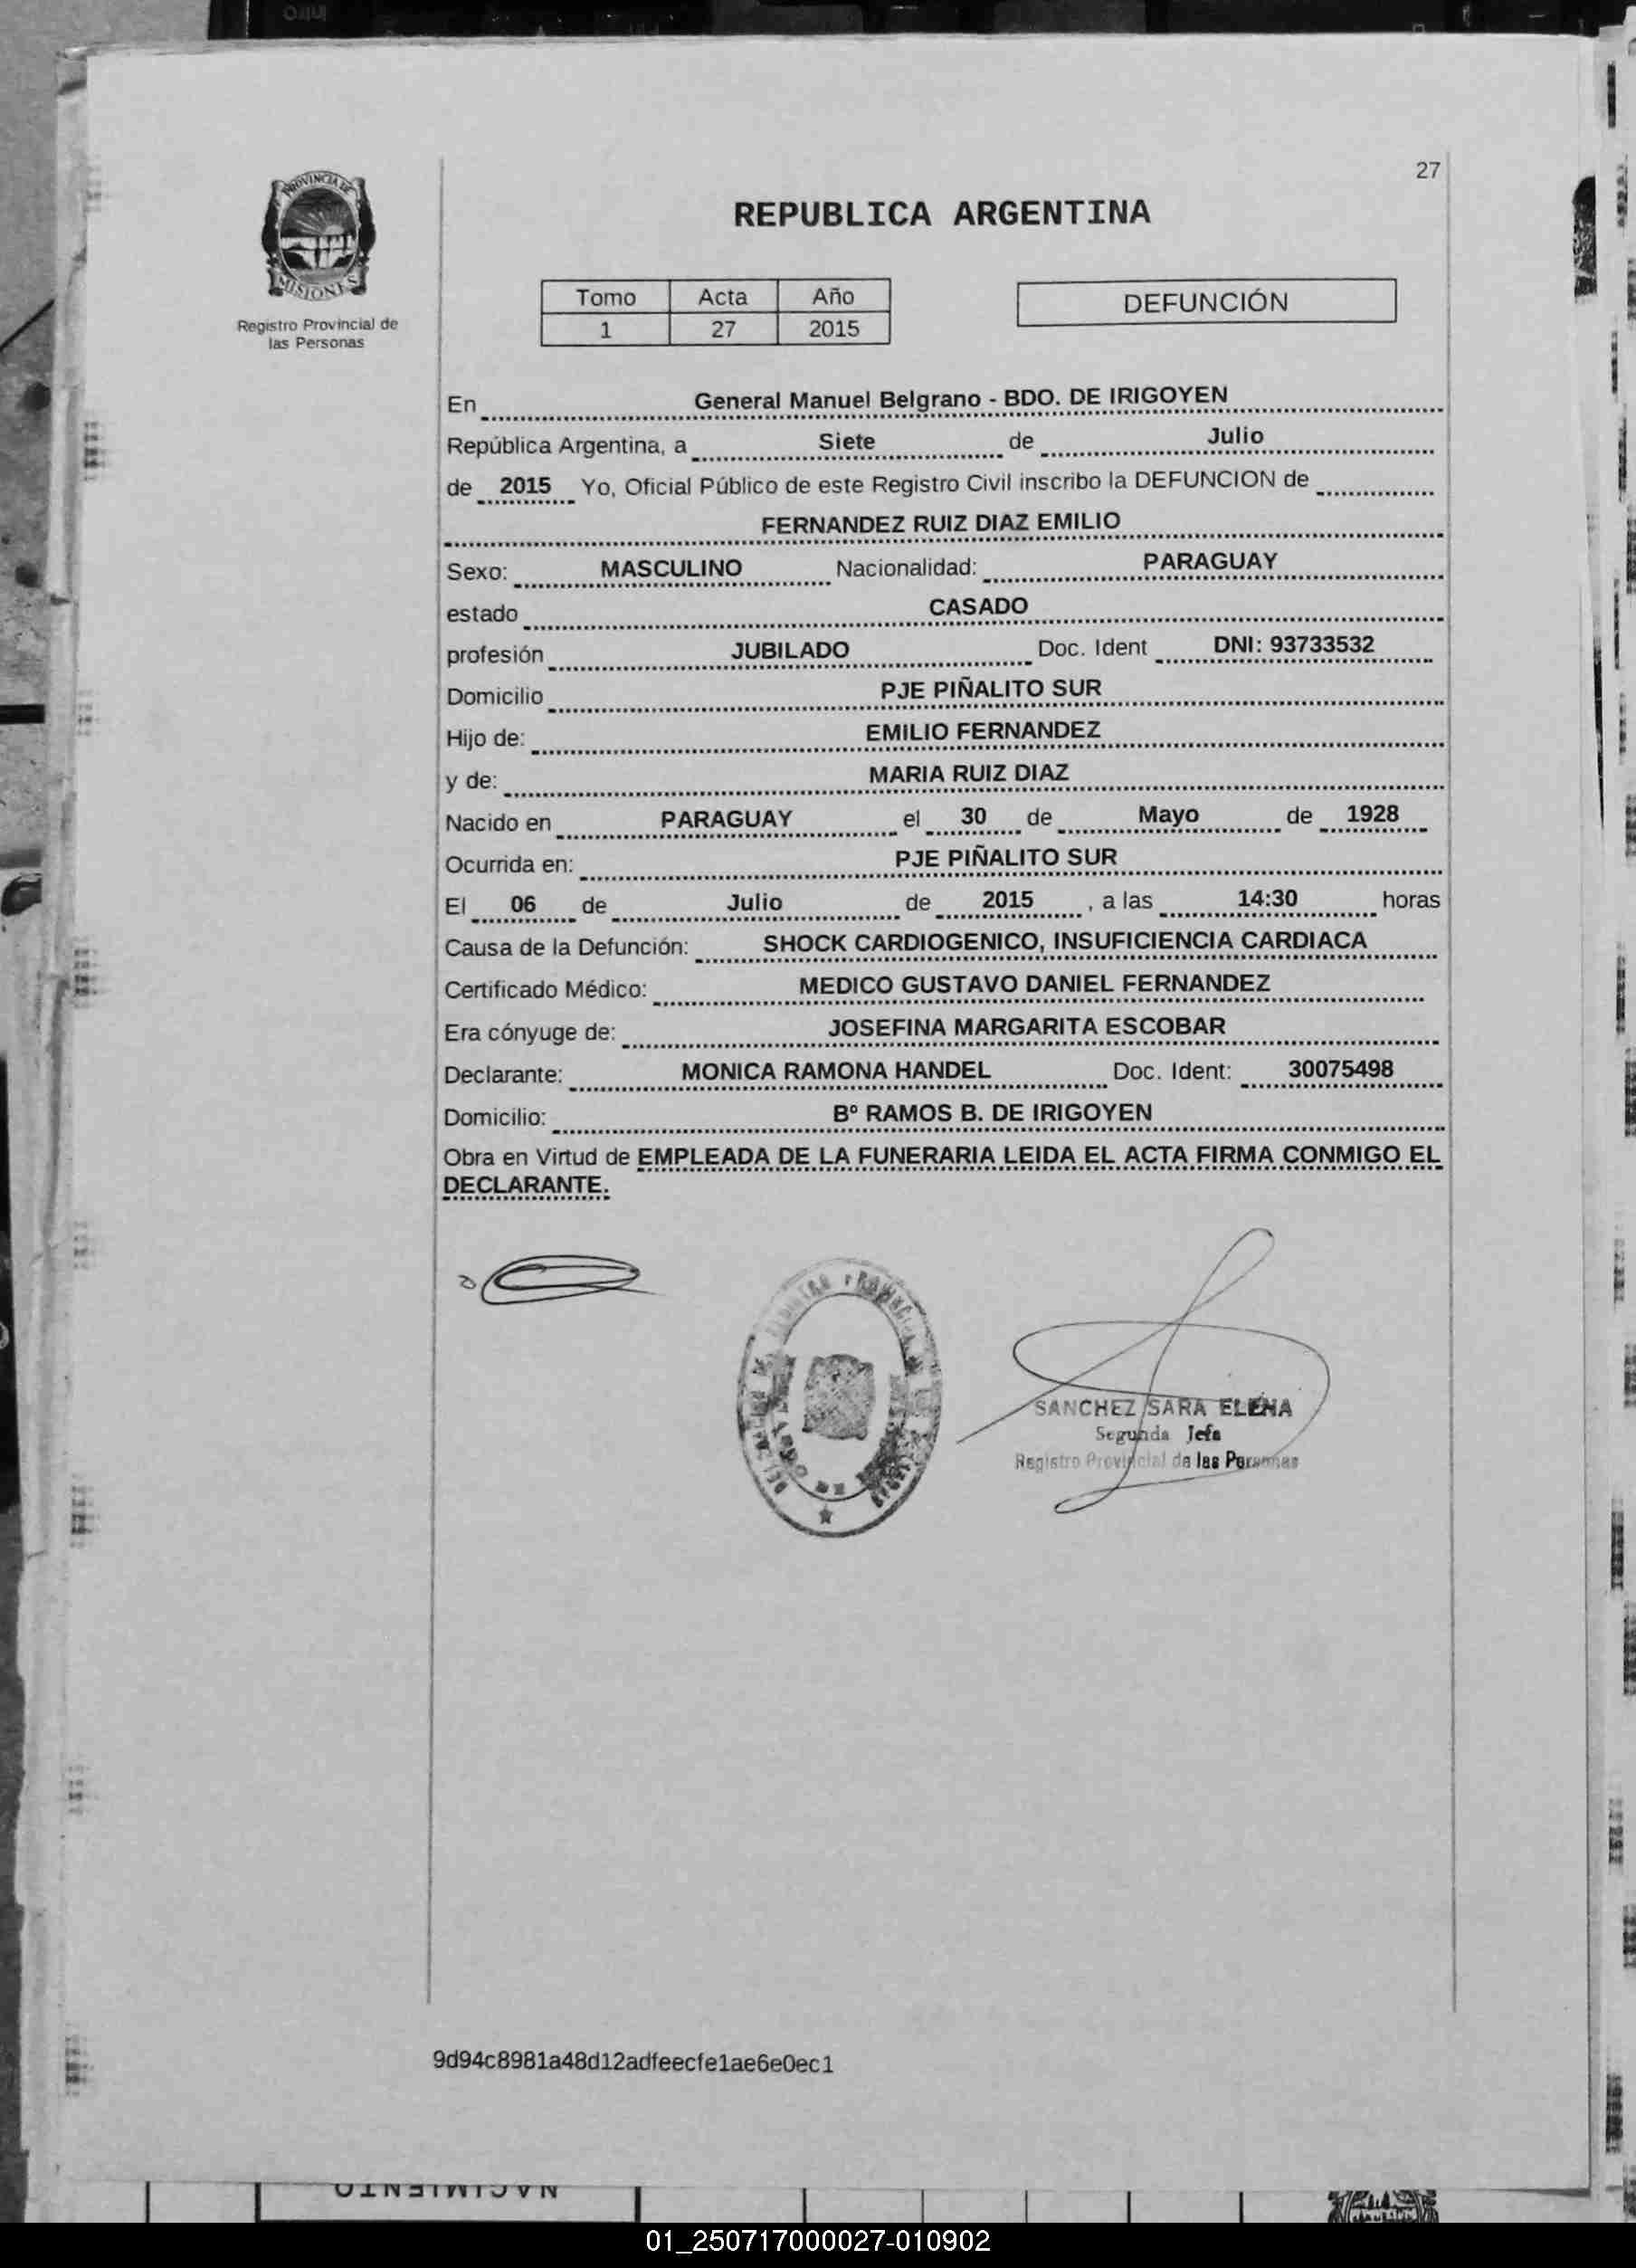 27
PROVINCIA DE
MISIONES
Registro Provincial de
las Personas
REPUBLICA ARGENTINA
Tomo Acta Año
1 27 2015
DEFUNCIÓN
En General Manuel Belgrano - BDO. DE IRIGOYEN
República Argentina, a Siete de Julio
de 2015 Yo, Oficial Público de este Registro Civil inscribo la DEFUNCION de
FERNANDEZ RUIZ DIAZ EMILIO
Sexo: MASCULINO Nacionalidad: PARAGUAY
estado CASADO
profesión JUBILADO Doc. Ident DNI: 93733532
Domicilio PJE PIÑALITO SUR
Hijo de: EMILIO FERNANDEZ
y de: MARIA RUIZ DIAZ
Nacido en PARAGUAY el 30 de Mayo de 1928
Ocurrida en: PJE PIÑALITO SUR
El 06 de Julio de 2015 , a las 14:30 horas
Causa de la Defunción: SHOCK CARDIOGENICO, INSUFICIENCIA CARDIACA
Certificado Médico: MEDICO GUSTAVO DANIEL FERNANDEZ
Era cónyuge de: JOSEFINA MARGARITA ESCOBAR
Declarante: MONICA RAMONA HANDEL Doc. Ident: 30075498
Domicilio: Bº RAMOS B. DE IRIGOYEN
Obra en Virtud de EMPLEADA DE LA FUNERARIA LEIDA EL ACTA FIRMA CONMIGO EL
DECLARANTE.
SANCHEZ SARA ELENA
Segunda Jefa
Registro Provincial de las Personas
9d94c8981a48d12adfeecfe1ae6e0ec1
NACIMIENTO
01_250717000027-010902